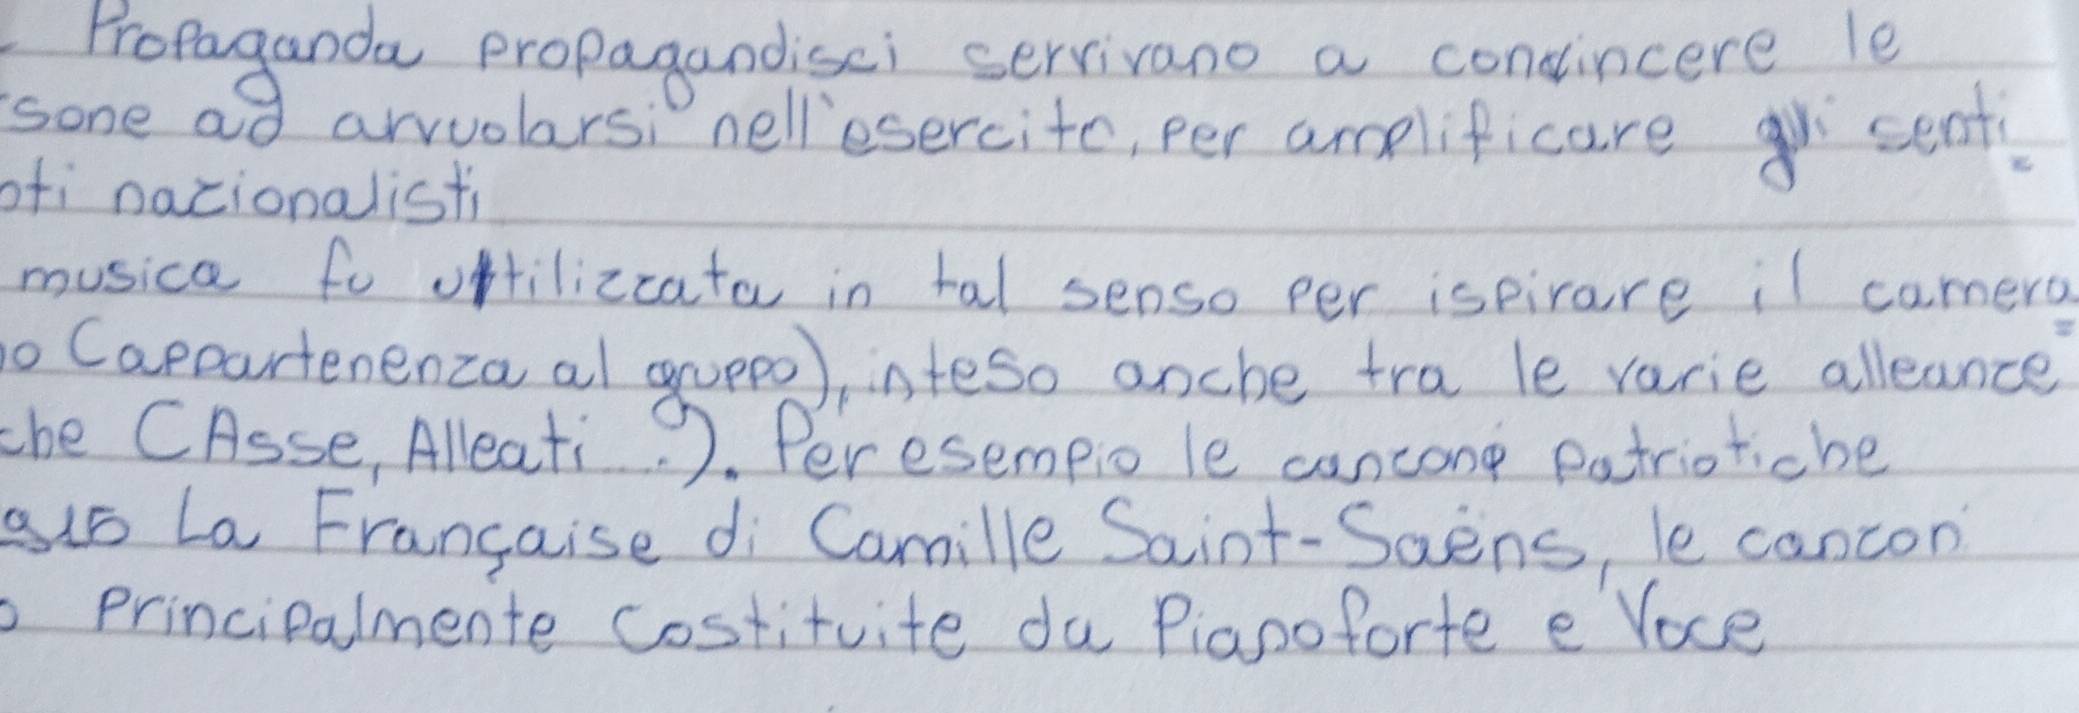 Propaganda propagandisci servivano a convincere le
sone ad arvuolarsi nell'esercito, per amplificare gli senti=
oti nazionalisti
musica fu uttilizzata in tal senso per ispirare il camera=
o (appartenenza al gruppo), inteso anche tra le varie alleanze
che (Asse, Alleati ..). Per esempio le canzone patriotiche
La Française di Camille Saint-Saëns, le canzoni
o principalmente costituite da pianoforte e voce